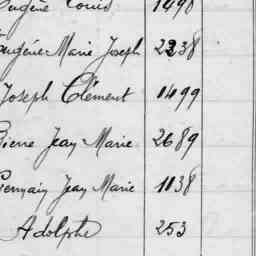 Eugène Louis 1498
Eugène Marie Joseph 2238
Joseph Clément 1499
Pierre Jean Marie 2689
Germain Jean Marie 1138
Adolphe 253